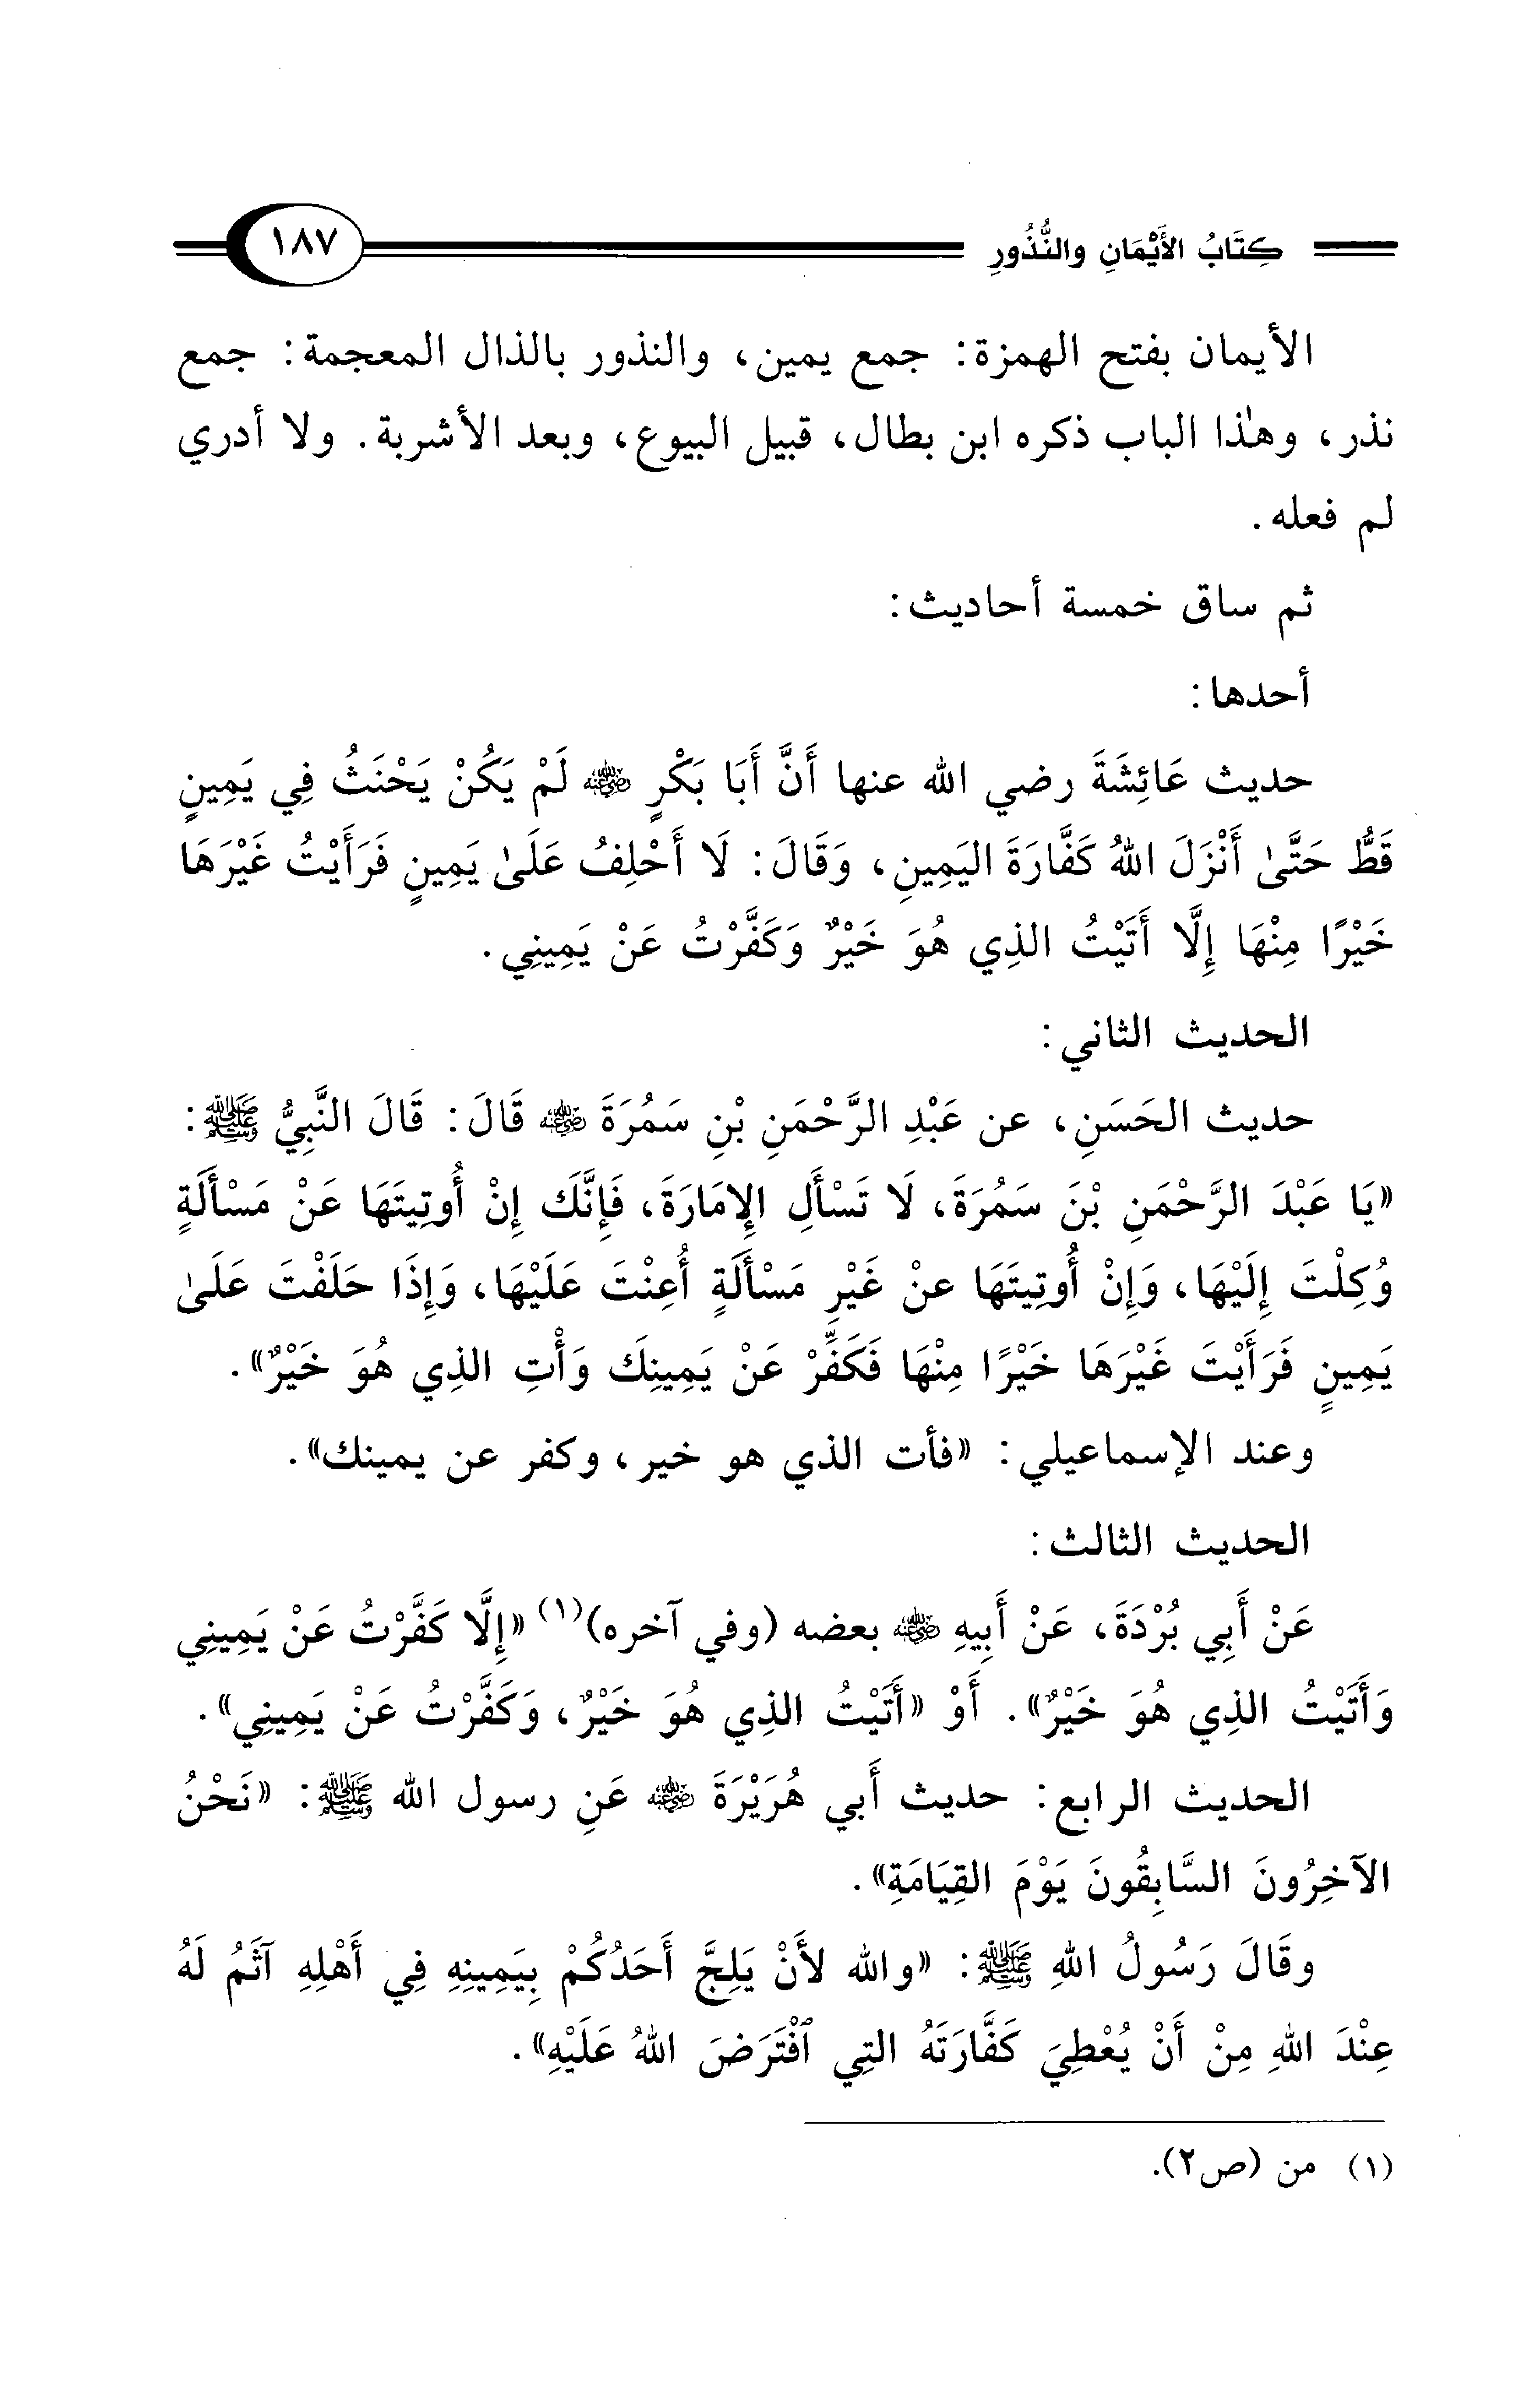 كِتَابُ الأَيْمَانِ والنُّذُورِ ١٨٧
الأيمان بفتح الهمزة: جمع يمين، والنذور بالذال المعجمة: جمع
نذر، وهٰذا الباب ذكره ابن بطال، قبيل البيوع، وبعد الأشربة. ولا أدري
لم فعله.
ثم ساق خمسة أحاديث:
أحدها:
حديث عَائِشَةَ رضي الله عنها أَنَّ أَبَا بَكْرٍ رضي الله عنه لَمْ يَكُنْ يَحْنَثُ فِي يَمِينٍ
قَطُّ حَتَّىٰ أَنْزَلَ اللهُ كَفَّارَةَ اليَمِينِ، وَقَالَ: لَا أَحْلِفُ عَلَىٰ يَمِينٍ فَرَأَيْتُ غَيْرَهَا
خَيْرًا مِنْهَا إِلَّا أَتَيْتُ الذِي هُوَ خَيْرٌ وَكَفَّرْتُ عَنْ يَمِينِي.
الحديث الثاني:
حديث الحَسَنِ، عن عَبْدِ الرَّحْمَنِ بْنِ سَمُرَةَ رضي الله عنه قَالَ: قَالَ النَّبِيُّ ﷺ:
«يَا عَبْدَ الرَّحْمَنِ بْنَ سَمُرَةَ، لَا تَسْأَلِ الإِمَارَةَ، فَإِنَّكَ إِنْ أُوتِيتَهَا عَنْ مَسْأَلَةٍ
وُكِلْتَ إِلَيْهَا، وَإِنْ أُوتِيتَهَا عنْ غَيْرِ مَسْأَلَةٍ أُعِنْتَ عَلَيْهَا، وَإِذَا حَلَفْتَ عَلَىٰ
يَمِينٍ فَرَأَيْتَ غَيْرَهَا خَيْرًا مِنْهَا فَكَفِّرْ عَنْ يَمِينِكَ وَأْتِ الذِي هُوَ خَيْرٌ».
وعند الإسماعيلي: «فأت الذي هو خير، وكفر عن يمينك».
الحديث الثالث:
عَنْ أَبِي بُرْدَةَ، عَنْ أَبِيهِ رضي الله عنه بعضه (وفي آخره)(١) «إِلَّا كَفَّرْتُ عَنْ يَمِينِي
وَأَتَيْتُ الذِي هُوَ خَيْرٌ». أَوْ «أَتَيْتُ الذِي هُوَ خَيْرٌ، وَكَفَّرْتُ عَنْ يَمِينِي».
الحديث الرابع: حديث أَبي هُرَيْرَةَ رضي الله عنه عَنِ رسول الله ﷺ: «نَحْنُ
الآخِرُونَ السَّابِقُونَ يَوْمَ القِيَامَةِ».
وقَالَ رَسُولُ اللهِ ﷺ: «والله لأَنْ يَلِجَّ أَحَدُكُمْ بِيَمِينِهِ فِي أَهْلِهِ آثَمُ لَهُ
عِنْدَ اللهِ مِنْ أَنْ يُعْطِيَ كَفَّارَتَهُ التِي ٱفْتَرَضَ اللهُ عَلَيْهِ».
(١) من (ص٢).